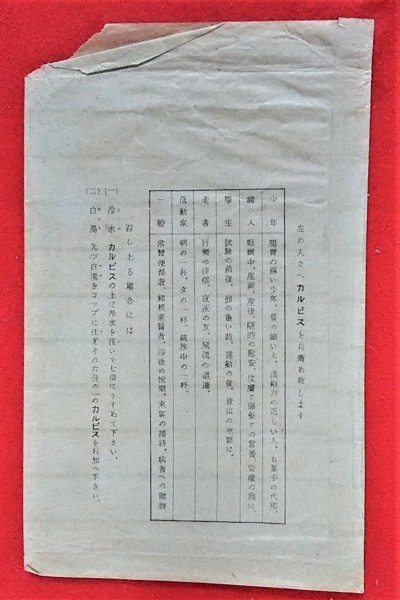 左の人々へカルピスをお薦め致します
少年 腸胃の弱い少年。骨の細い人。活動力の乏しい人。お菓子の代用。
婦人 姙娠中。産前。産後。随時の慰安。皮膚と頭髪との営養。安産の為に。
學生 試験の前後。頭の重い時。運動の後。登山の水筒に。
老者 行楽の伴侶。夜永の友。風流の道連。
活動家 朝の一杯。夕の一杯。執務中の一杯。
一般 常習便秘者。結核素質者。浴後の悦楽。来客の接待。病者への贈物
召し上る場合には
(一) 冷水 カルピスの上に冷水を注いで七倍にうすめて下さい。
(二) 白湯 先づ白湯をコップに注ぎその六分の一のカルピスをお加へ下さい。